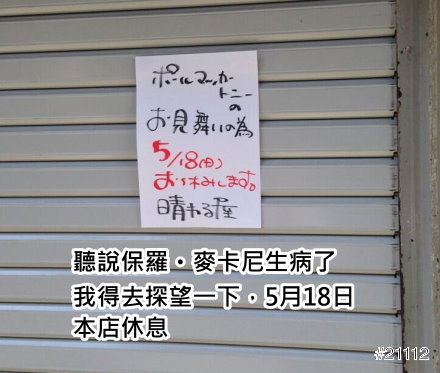 ポールマッカー
トニーの
お見舞いの為
5/18(日)
お休みします。
晴れる屋
聽說保羅・麥卡尼生病了
我得去探望一下，5月18日
本店休息
#21112